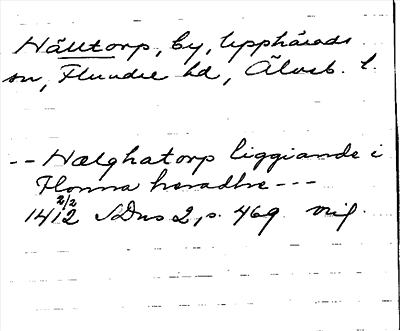 Hälltorp, by, Upphärads
sn, Flundre hd, Älvsb. l.
-- Hælghatorp liggiande i
Flonna heradhe ---
14 2/2 12 SDns 2, s. 469 orig.